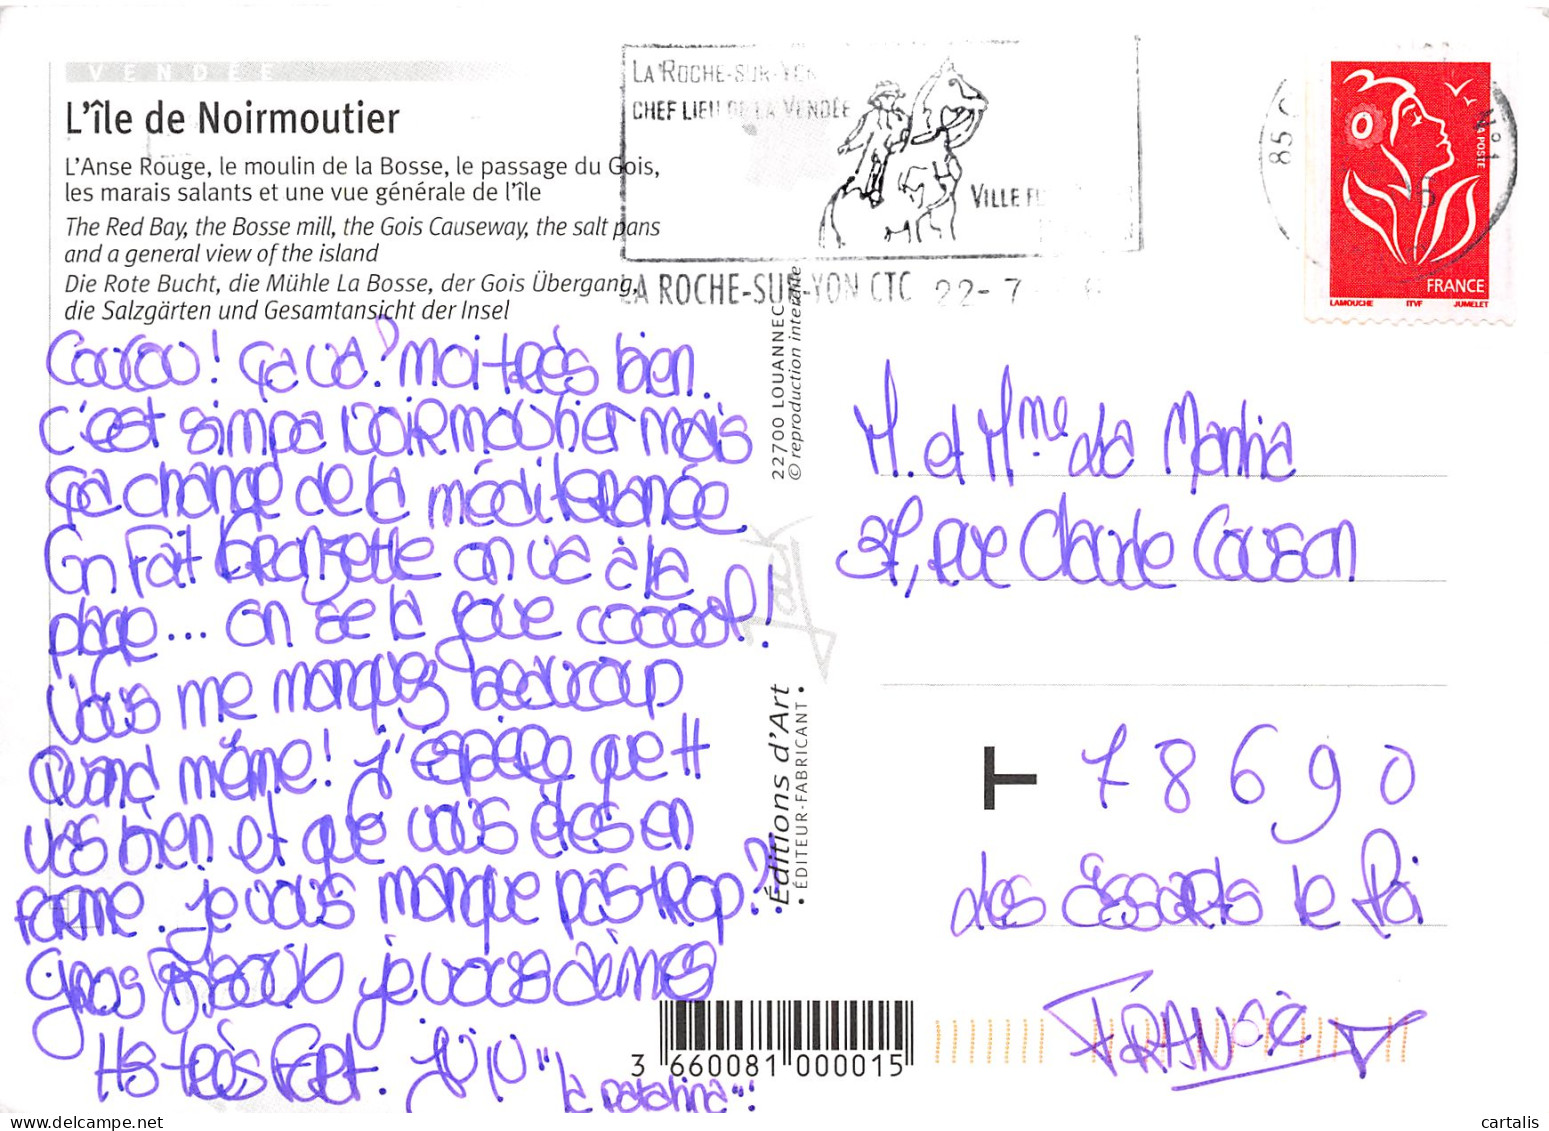 VENDÉE
L'île de Noirmoutier
L'Anse Rouge, le moulin de la Bosse, le passage du Gois,
les marais salants et une vue générale de l'île
The Red Bay, the Bosse mill, the Gois Causeway, the salt pans
and a general view of the island
Die Rote Bucht, die Mühle La Bosse, der Gois Übergang,
die Salzgärten und Gesamtansicht der Insel
Coucou! ça va? moi très bien.
C'est simpa Noirmoutier mais
ça change de la méditeranée
On fait bronzette on va à la
plage... on se la joue cooool!
Vous me manquez beaucoup
Quand même! j'espère que tt
vas bien et que vous êtes en
forme. je vous manque pas trop??
Gros je vous aimes
très fort.
LA ROCHE-SUR-YON
CHEF LIEU DE LA VENDÉE
VILLE
LA ROCHE-SUR-YON CTC 22-7
85
LA POSTE
FRANCE
LAMOUCHE ITVF JUMELET
22700 LOUANNEC
© reproduction interdite
Jack
Éditions d'Art
• ÉDITEUR-FABRICANT •
M. et Mme da
37, rue Claude
T 78690
des Essarts le Roi
FRANCE
3 660081 000015
cartalis.com